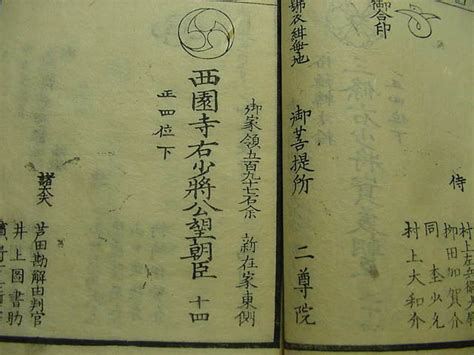 御合印
侍
村上左兵衛
柳田加賀介
同 杢少允
村上大和介
衣紺無地
御菩提所 二尊院
御家領五百九十七石余 新在家東側
西園寺右少將公望朝臣 十四
正四位下
諸大夫
芦田勘解由判官
井上圖書助